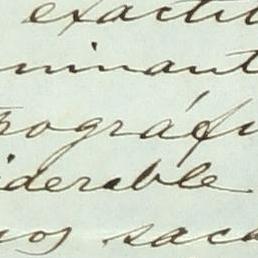 exactit
minant
pográfi
iderable
nos saca